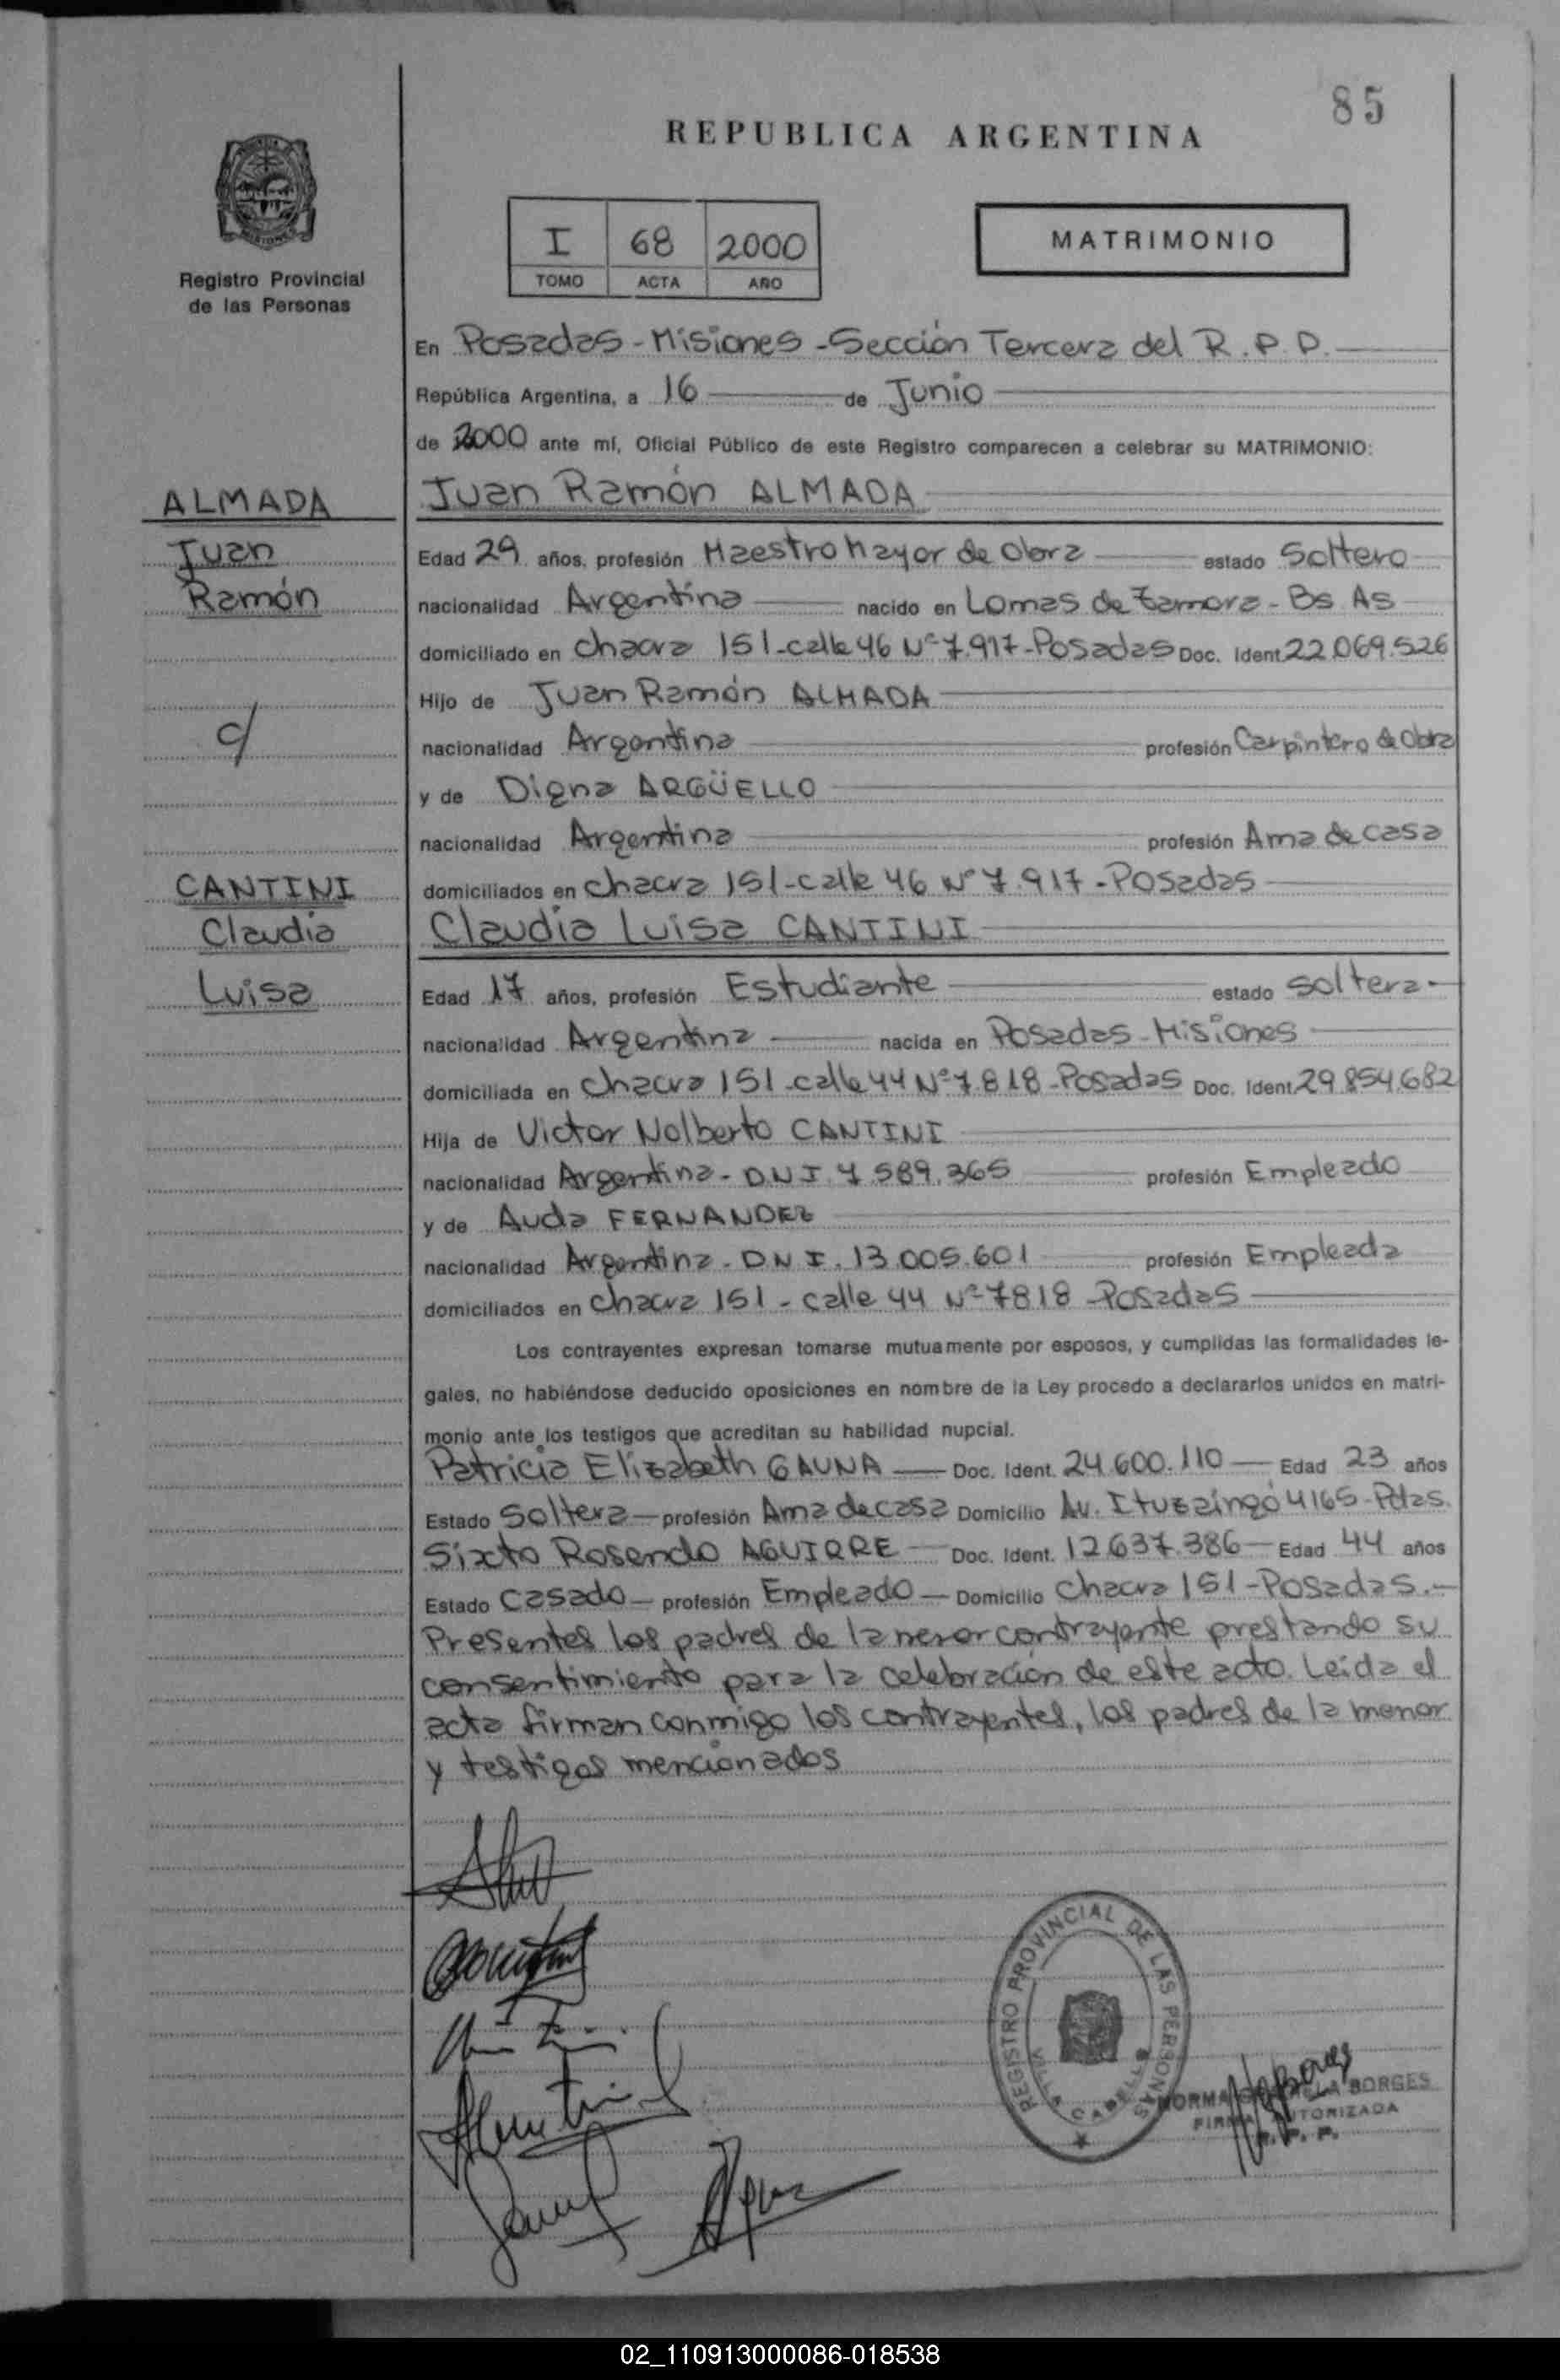 85
REPUBLICA ARGENTINA
I 68 2000
TOMO ACTA AÑO
MATRIMONIO
Registro Provincial
de las Personas
En Posadas - Misiones - Sección Tercera del R.P.P.
República Argentina, a 16 de Junio
de 2000 ante mí, Oficial Público de este Registro comparecen a celebrar su MATRIMONIO:
ALMADA
Juan
Ramón
c/
CANTINI
Claudia
Luisa
Juan Ramón ALMADA
Edad 29 años, profesión Maestro Mayor de Obra estado Soltero
nacionalidad Argentina nacido en Lomas de Zamora - Bs As
domiciliado en Chacra 151 - calle 46 Nº 7.917 - Posadas Doc. Ident 22.069.526
Hijo de Juan Ramón ALMADA
nacionalidad Argentina profesión Carpintero de Obra
y de Digna ARGÜELLO
nacionalidad Argentina profesión Ama de casa
domiciliados en Chacra 151 - calle 46 Nº 7.917 - Posadas
Claudia Luisa CANTINI
Edad 17 años, profesión Estudiante estado soltera -
nacionalidad Argentina nacida en Posadas - Misiones
domiciliada en Chacra 151 - calle 44 Nº 7.818 - Posadas Doc. Ident. 29.854.682
Hija de Victor Nolberto CANTINI
nacionalidad Argentina - D.N.I. 7.589.365 profesión Empleado
y de Auda FERNANDEZ
nacionalidad Argentina - D.N.I. 13.005.601 profesión Empleada
domiciliados en Chacra 151 - calle 44 Nº 7818 - Posadas
Los contrayentes expresan tomarse mutuamente por esposos, y cumplidas las formalidades le-
gales, no habiéndose deducido oposiciones en nombre de la Ley procedo a declararlos unidos en matri-
monio ante los testigos que acreditan su habilidad nupcial.
Patricia Elizabeth GAUNA Doc. Ident. 24.600.110 Edad 23 años
Estado Soltera profesión Ama de casa Domicilio Av. Ituzaingó 4165 - Pdas.
Sixto Rosendo AGUIRRE Doc. Ident. 12.637.386 Edad 44 años
Estado Casado profesión Empleado Domicilio Chacra 151 - Posadas. -
Presentes los padres de la menor contrayente prestando su
consentimiento para la celebración de este acto. Leída el
acta firman conmigo los contrayentes, los padres de la menor
y testigos mencionados
REGISTRO PROVINCIAL DE LAS PERSONAS
VILLA CABELLO
NORMA BORGES
FIRMA AUTORIZADA
R. P. P.
02_110913000086-018538